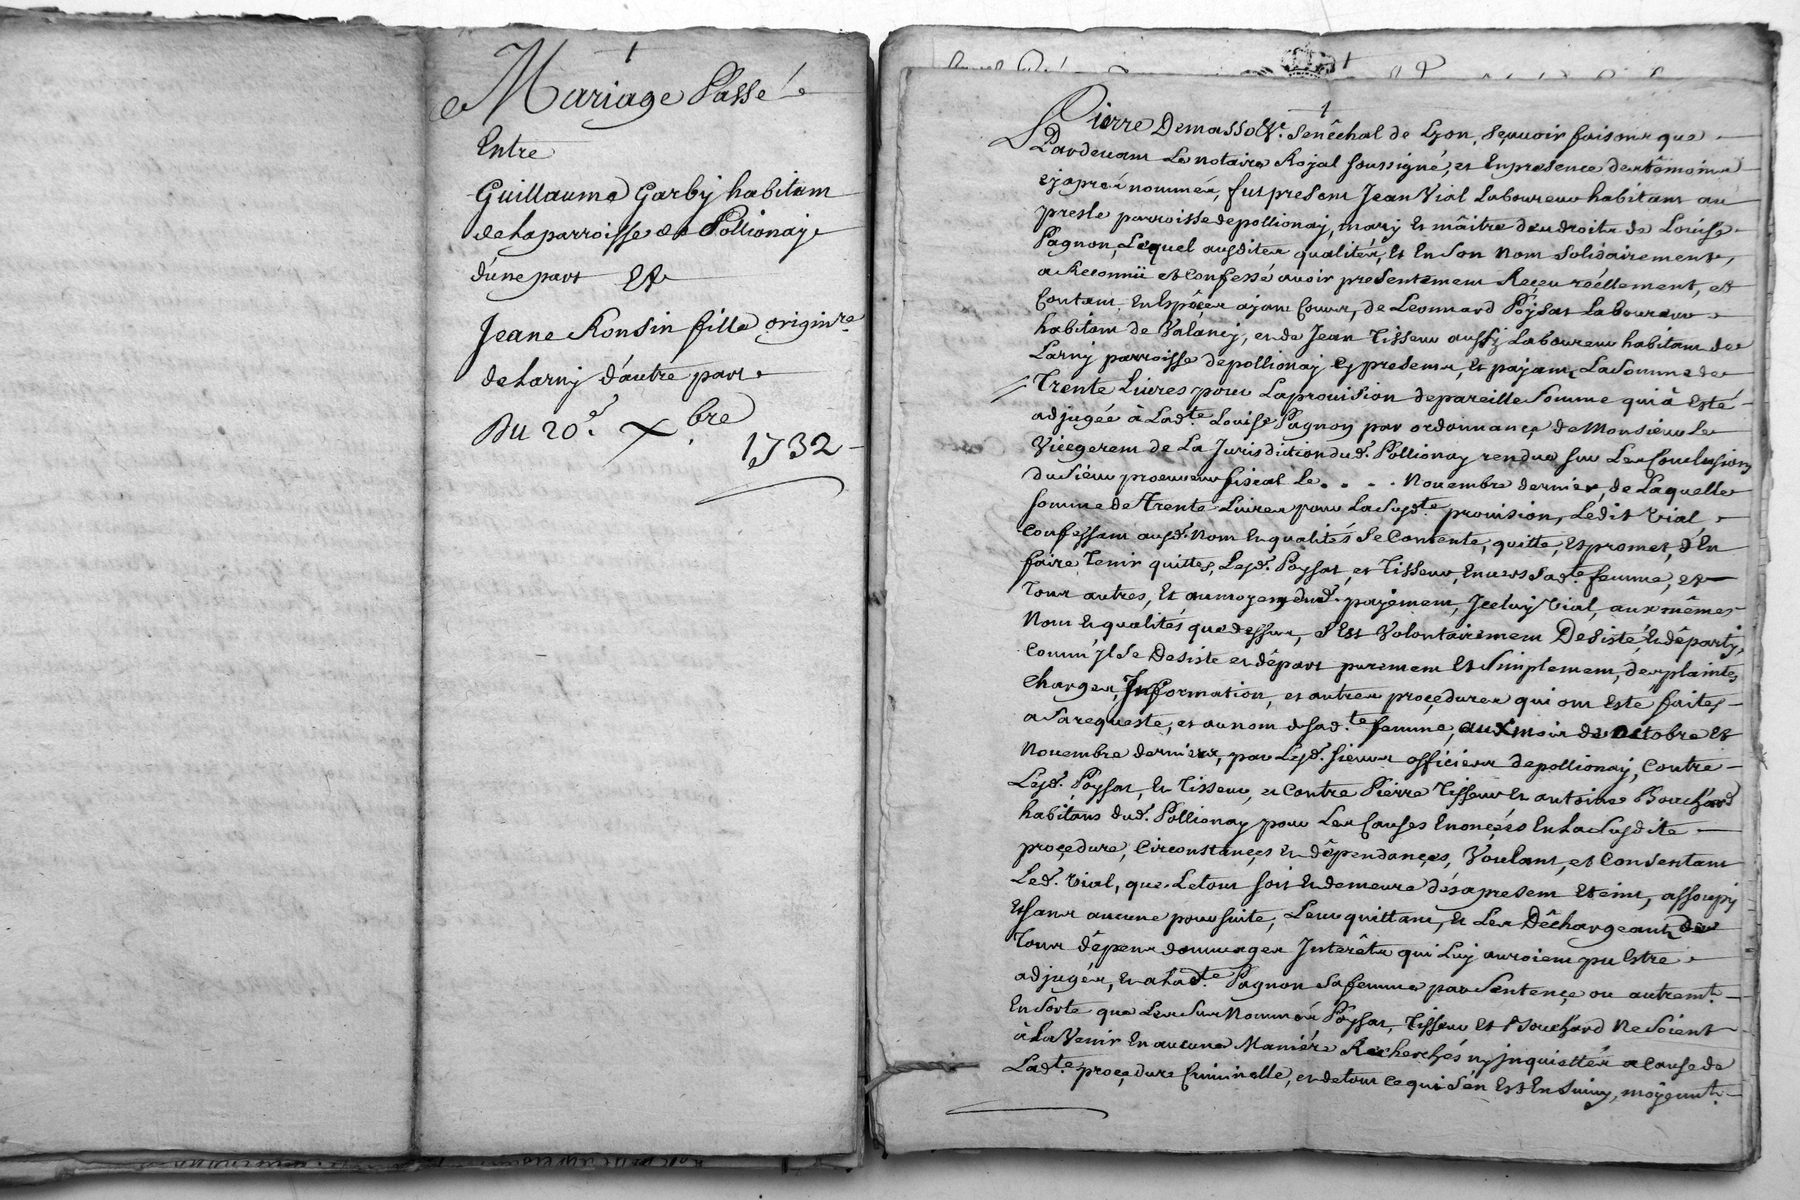 Mariage Passé
Entre
Guillaume Garby habitant
de la parroisse de Pollionay
d'une part Et
Jeane Ronsin fille originre
de Larny d'autre part
Du 20e. Xbre
1732
Pierre Demasso Sr. Senêchal de Lyon, sçavoir faisons que
Pardevant Le notaire Royal soussigné, et En presence des têmoins
cy aprés nommés, fut present Jean Vial Laboureur habitant au
presle parroisse de pollionay, mary et maître des droits de Loüise
Pagnon, Lequel ausdites qualités, Et En son nom solidairement,
a Reconnü et confessé avoir presentement Reçeu réellement, et
Contant En Espêces ayant Cours, de Leonnard Poysat Laboureur
habitant de Valancy, et de Jean Tisseur aussy Laboureur habitant de
Larny parroisse de pollionay cy presents, Et payants La Somme de
Trente Livres pour La provision de pareille Somme qui à Esté
adjugée à Ladte Loüise Pagnon par ordonnançe de Monsieur Le
Vicegerent de La Jurisdiction dud. Pollionay rendue sur Les Conclusions
du Sieur procureur fiscal Le . . . . Novembre dernier, de Laquelle
somme de Trente Livres pour La susdte. provision, Ledit Vial
Confessant ausd. nom Et qualités Se Contente, quitte, Et promet, d'En
faire Tenir quittes, Lesd. Poysat, et Tisseur, Envers Sadte femme, et
Tous autres, Et au moyen dud. payement, Iceluy Vial, aux mêmes
Nom Et qualités que dessus, s'Est Volontairement Desisté, Et départy,
Comm'il Se Desiste et départ purement Et Simplement, des plaintes,
Charges, Information, et autres proçedures qui ont Esté faites
a Sa requeste, et au nom de sadte. femme, aux mois de octobre Et
Novembre derniers, par Lesd. Sieurs officiers de pollionay, Contre
Lesd. Poysat, Et Tisseur, et Contre Pierre Tisseur Et antoine Bouchard
habitans dud. Pollionay pour Les Causes Enonçées En La Susdite
proçedure, Circonstançes Et dêpendançes, Voulant, et Consentant
Led. Vial, que Le tout soit Et demeure dés a present Eteint, assoupy
Et sans aucune poursuite, Leur quittant, Et Les Dêchargeant de
Tous dêpens dommages Interêts qui Luy auroient pu Estre
adjugés, Et a Ladte. Pagnon sa femme par Sentençe ou autremt.
En Sorte que Les Sus Nommés Poysat, Tisseur Et Bouchard Ne Soient
à La Venir En aucune Maniére Recherchés ny Inquiettés a Cause de
Ladte. proçedure Criminelle, et de tout ce qui S'en Est En Suivy, moÿennt.